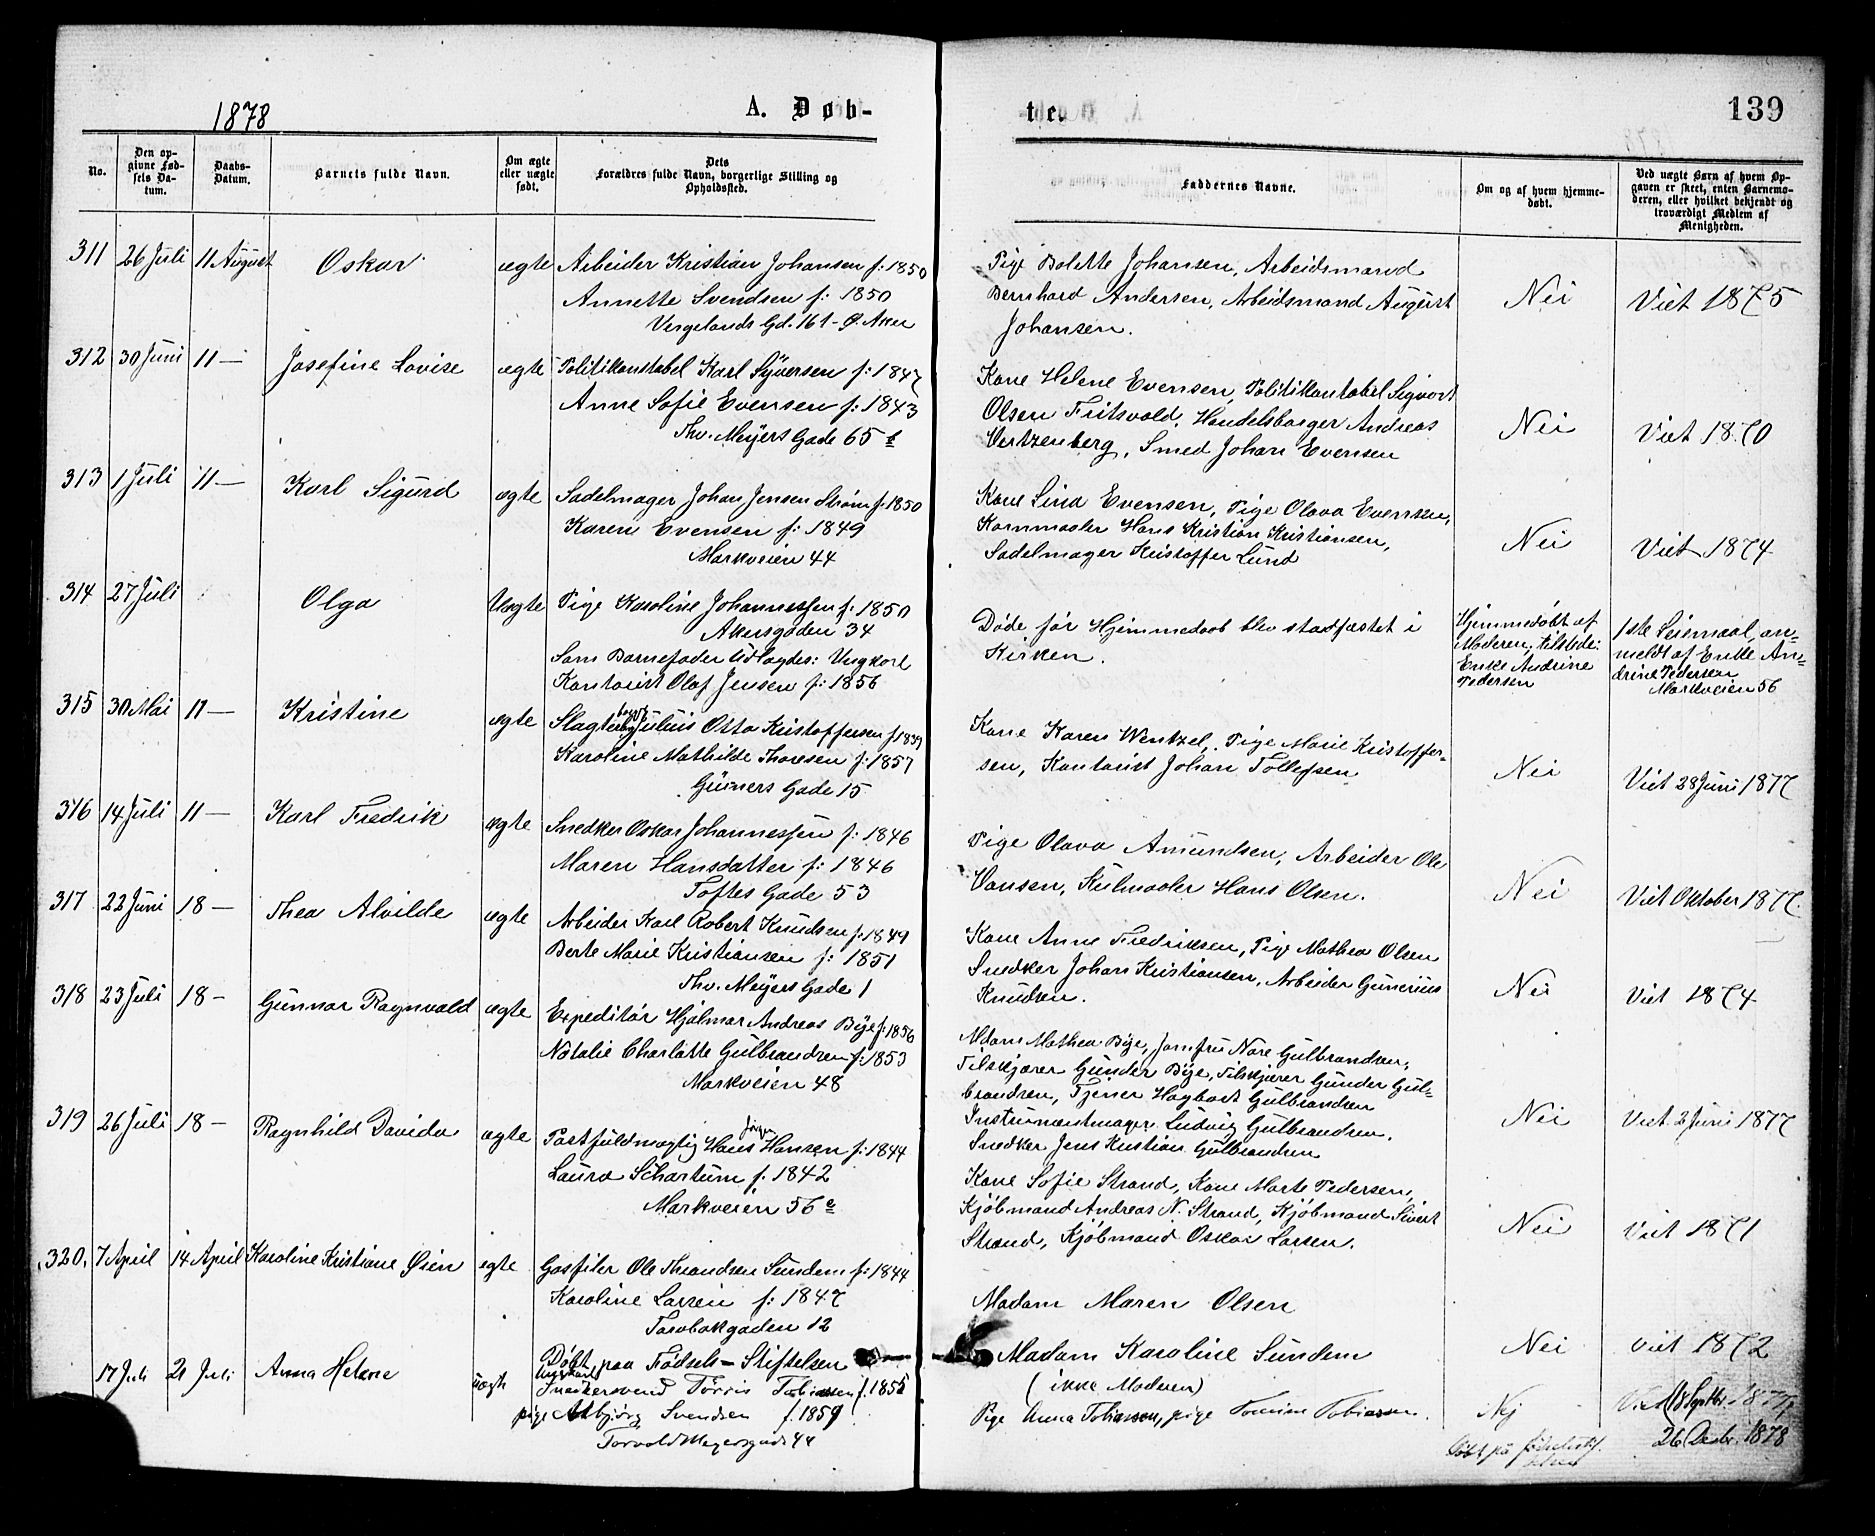 1878
A. Døb-
te.
139
No.
Den op-
givne Fød-
sels Da-
tum.
Daabs-
Datum.
Barnets fulde Navn.
Om ægte
eller uægte
født.
Dets
Forældres fulde Navn, borgerlige Stilling og
Opholdssted.
Faddernes Navne.
Om og af hvem hjemme-
døbt.
Ved uægte Børn af hvem Op-
gaven er skeet, enten Barnemo-
deren, eller hvilket bekjendt og
troværdigt Medlem af
Menigheden.
311 26 Juli 11 August Oskar ægte Arbeider Kristian Johansen f: 1850
Annette Svendsen f: 1850
Vergelands Gd. 161 - Ø. Aker
Pige Bolette Johansen, Arbeidsmand
Bernhard Andersen, Arbeidsmand August
Johansen.
Nei
Viet 1875
312 30 Juni 11 — Josefine Lovise ægte Politikonstabel Karl Syversen f: 1847
Anne Sofie Evensen f: 1843
Thv. Meyers Gade 65
Kone Helene Evensen, Politikonstabel Sigvart
Olsen Fritsvold, Handelsborger Andreas
Vertzenberg, Smed Johan Evensen
Nei
Viet 1870
313 1 Juli 11 — Karl Sigurd ægte Sadelmager Johan Jensen Strøm f: 1850
Karen Evensen f: 1849
Markveien 44
Kone Sina Evensen, Pige Olava Evensen,
Kornmaaler Hans Kristian Kristiansen,
Sadelmager Kristoffer Lund
Nei
Viet 1874
314 27 Juli Olga Uægte Pige Karoline Johannessen f: 1850
Akersgaden 34
Som Barnefader udlagdes: Ungkarl
Kontorist Olaf Jensen f: 1856
Døde før Hjemmedaab blev stadfæstet i
Kirken.
Hjemmedøbt af
Moderen, tilstede:
Enke Andrine
Pedersen
1ste Leiemaal, an=
meldt af Enke An=
drine Pedersen
Markveien 56
315 30 Mai 11 — Kristine ægte Slagter Julius Otto Kristoffersen f: 1839
Karoline Mathilde Thoresen f: 1857
Grüners Gade 15
Kone Karen Wentzel, Pige Marie Kristoffer-
sen, Kontorist Johan Tollefsen
Nei
Viet 28 Juni 1877
316 14 Juli 11 — Karl Fredrik ægte Snedker Oskar Johannessen f: 1846
Maren Hansdatter f: 1846
Toftes Gade 53
Pige Olava Amundsen, Arbeider Ole
Hansen, Kulmaaler Hans Olsen.
Nei
Viet Oktober 1877.
317 22 Juni 18 — Thea Alvilde ægte Arbeider Karl Robert Knudsen f: 1849
Berte Marie Kristiansen f: 1851
Thv. Meyers Gade 1
Kone Anne Fredriksen, Pige Mathea Olsen
Snedker Johan Kristiansen, Arbeider Gunerius
Knudsen.
Nei
Viet 1874
318 23 Juli 18 - Gunnar Ragnvald ægte Expeditør Hjalmar Andreas Bye f: 1856
Natalie Charlotte Gulbrandsen f: 1853
Markveien 48
Madam Mathea Bye, Jomfru Nore Gulbrandsen,
Filskjærer Gunder Bye, Filskjærer Gunder Gul=
brandsen, Tjener Hagbart Gulbrandsen
Instrumentmager Ludvig Gulbrandsen.
Snedker Jens Kristian Gulbrandsen
Nei
Viet 2 Juni 1877
319 26 Juli 18 - Ragnhild Davida ægte Postfuldmægtig Hans Jørgen Hansen f: 1844
Laura Schartum f. 1842
Markveien 56
Kone Sofie Strand, Kone Marte Pedersen,
Kjøbmand Andreas N. Strand, Kjøbmand Sivert
Strand, Kjøbmand Oskar Larsen.
Nei
Viet 1871
320. 7 April 14 April Karoline Kristiane Øien ægte Gasfiler Ole Thrandsen Sundem f: 1844
Karoline Larsen f: 1847
Torvbakgaden 12
Døbt paa Fødsels-Stiftelsen
Madam Maren Olsen
Madam Karoline Sundem
(ikke Moderen)
Nei
Viet 1872
17 Juli 21 Juli Anna Helene uægte Ungkarl
Snedkersvend Tørris Tobiassen f. 1855
pige Asbjørg Svendsen f. 1859
Torvald Meyersgade 44
Pige Anna Tobiassen, pige Tomine Tobiassen.
Nej
Døbt på fødselsstif.
26 Decbr. 1878